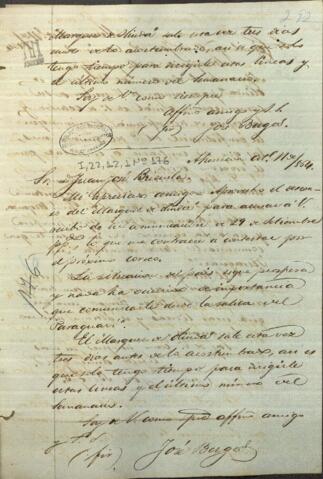 292
Marques de Olinda sale esta vez tres dias
antes de lo acostumbrado, así es que solo
tengo tiempo para dirigirle estas lineas y
el ultimo número del Semanario.
Soy de V. como siempre
affmo amigo y S. S.
(fir) José Berges
I,22,12,1 Nº 176
Asuncion Oct. 11/864.
Sr. Juan José Brizuela
Mi apreciado amigo: Aprovecho el
del Marques de Olinda para avisar a V.
recibo de su comunicacion de 29 de Setiembre
ppdo. lo que me contraeré a contestar por
el próximo correo.
La situacion del país sigue próspera
y nada ha ocurrido de importancia
que comunicarle desde la salida del
Paraguarí.
El Marques de Olinda sale esta vez
tres dias antes de lo acostumbrado, así es
que solo tengo tiempo para dirigirle
estas lineas y el último número del
Semanario.
Soy de V. como affmo amigo
y S. S.
(fir) José Berges
176